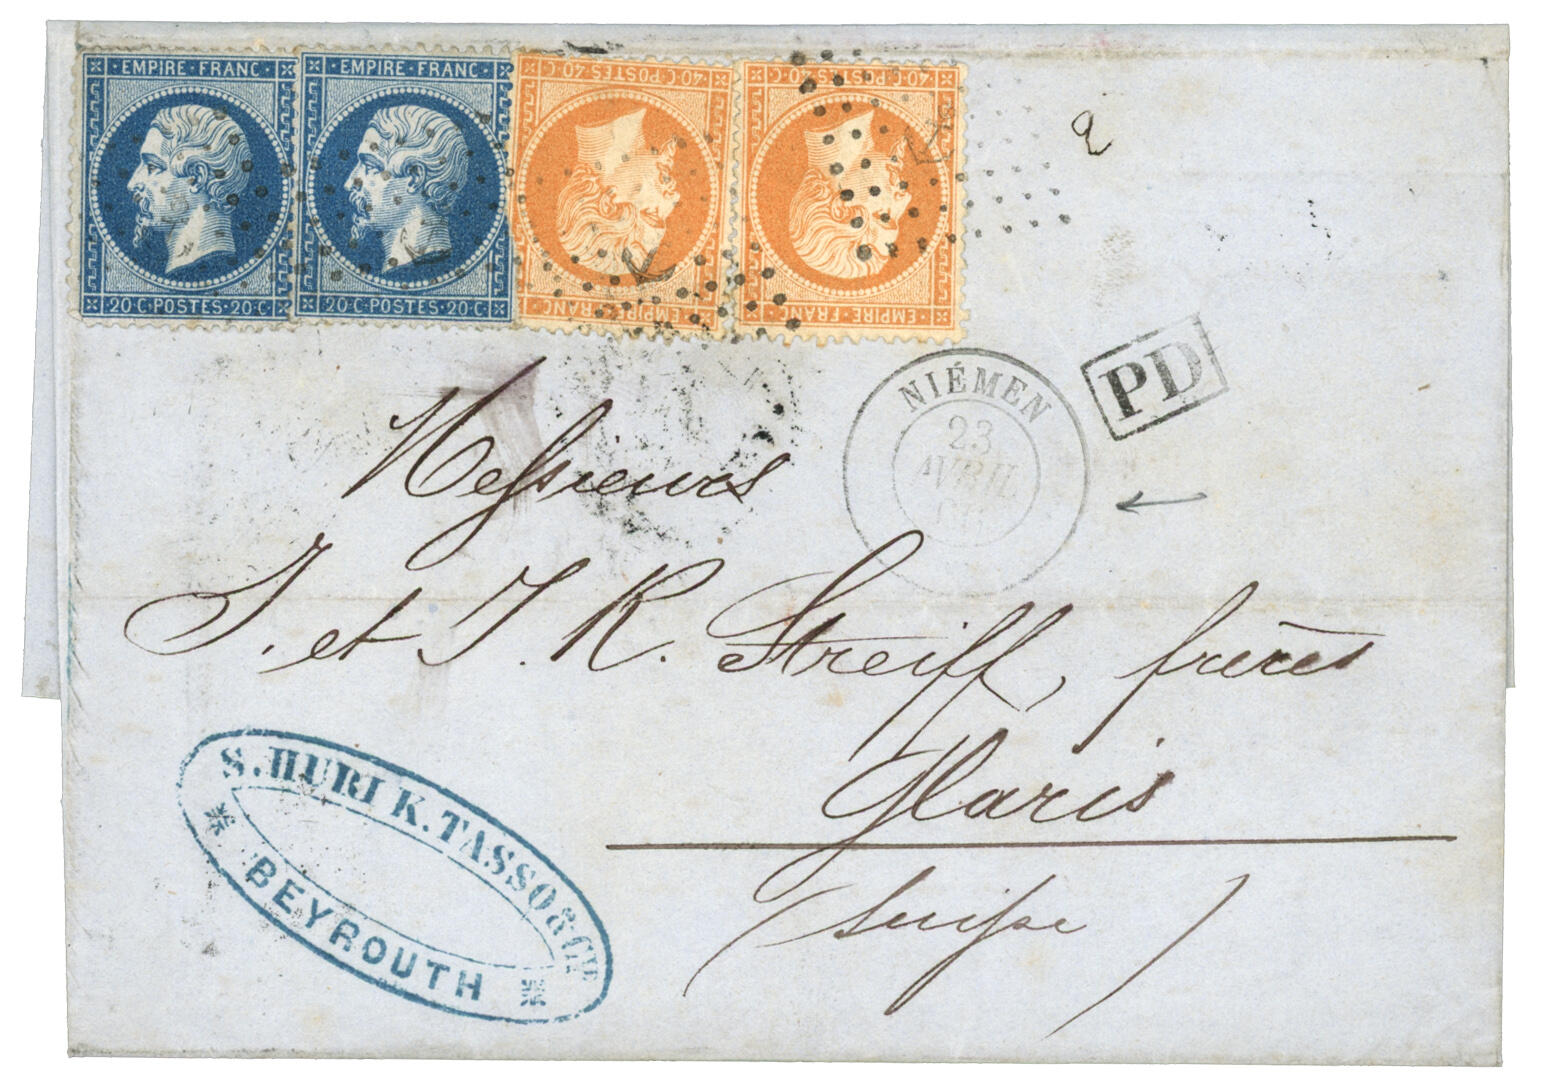 EMPIRE·FRANC·
20·C·POSTES·20·C·
EMPIRE·FRANC·
20·C·POSTES·20·C·
40·C·POSTES·40·C
EMPIRE·FRANC·
40·C·POSTES·40·C
EMPIRE·FRANC·
2
NIÉMEN
23
AVRIL
PD
Messieurs
J. et J. R. Streiff, frères
Glaris
(Suisse)
S. HURI K. TASSO & CIE
BEYROUTH